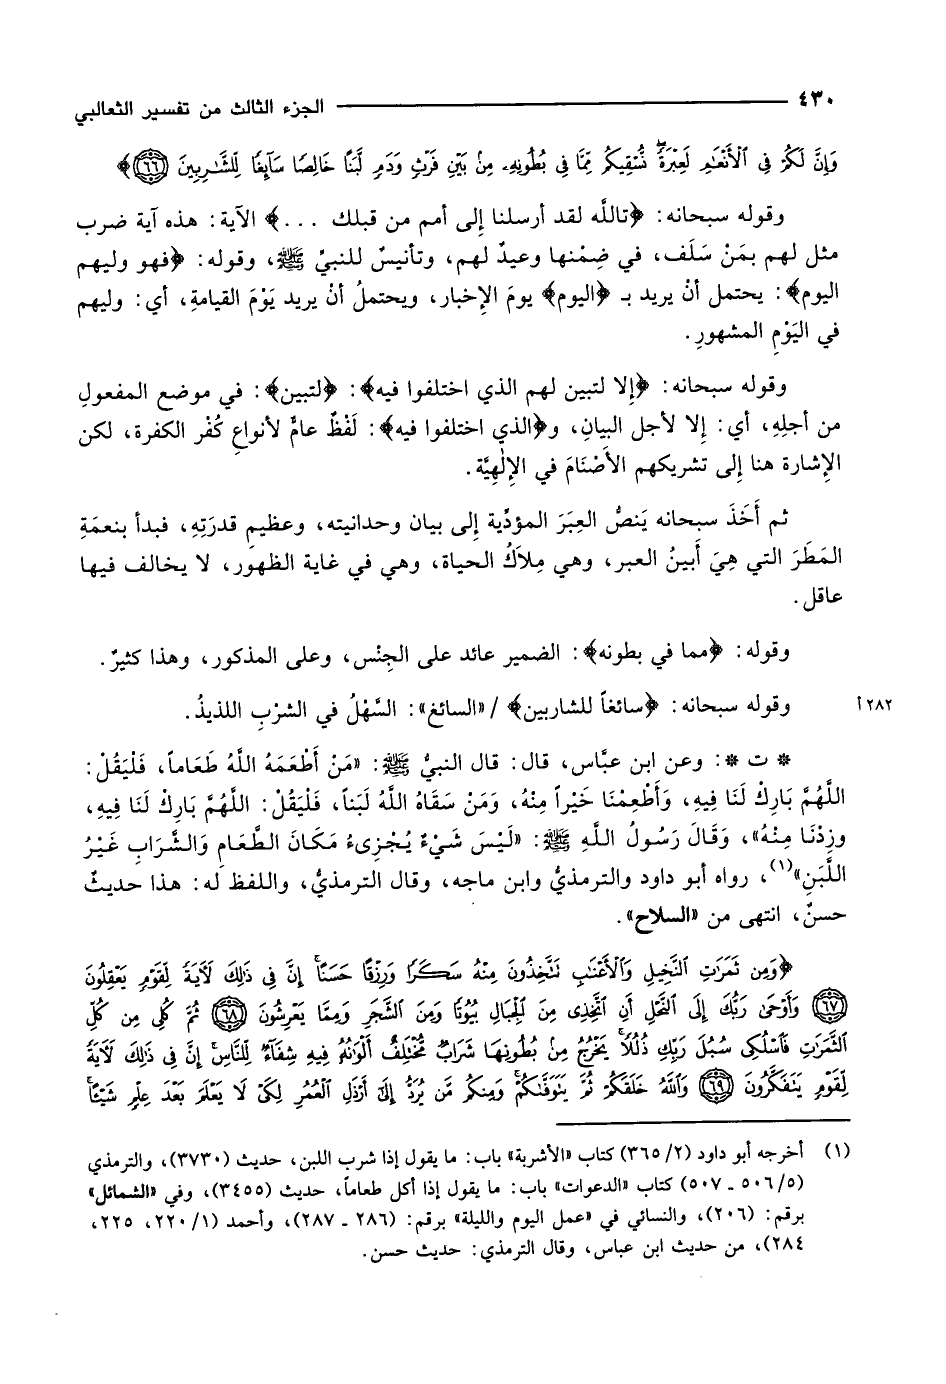 ٤٣٠ الجزء الثالث من تفسير الثعالبي
وَإِنَّ لَكُمْ فِي الْأَنْعَامِ لَعِبْرَةً نُّسْقِيكُم مِّمَّا فِي بُطُونِهِ مِنْ بَيْنِ فَرْثٍ وَدَمٍ لَّبَنًا خَالِصًا سَائِغًا لِّلشَّارِبِينَ ﴿٦٦﴾﴾
وقوله سبحانه: ﴿تاللَّه لقد أرسلنا إِلى أمم من قبلك ...﴾ الآية: هذه آية ضرب
مثل لهم بمَنْ سَلَف، في ضِمْنها وعيدٌ لهم، وتأنيسٌ للنبيِّ ﷺ، وقوله: ﴿فهو وليهم
اليوم﴾: يحتمل أنْ يريد بـ ﴿اليوم﴾ يومَ الإِخبار، ويحتملُ أنْ يريد يَوْمَ القيامةِ، أي: وليهم
في اليَوْمِ المشهورِ.
وقوله سبحانه: ﴿إِلا لتبين لهم الذي اختلفوا فيه﴾: ﴿لتبين﴾: في موضع المفعولِ
من أجلِهِ، أي: إِلا لأجل البيانِ، و﴿الذي اختلفوا فيه﴾: لَفْظٌ عامٌّ لأنواعِ كُفْر الكفرة، لكن
الإِشارة هنا إِلى تشريكهم الأَصْنَامَ في الإِلٰهِيَّة.
ثم أَخَذَ سبحانه يَنصُّ العِبَرَ المؤدِّية إِلى بيان وحدانيته، وعظيمِ قدرَتِهِ، فبدأ بنعمَةِ
المَطَرَ التي هِيَ أَبينُ العبر، وهي مِلاَكُ الحياة، وهي في غاية الظهور، لا يخالف فيها
عاقل.
وقوله: ﴿مما في بطونه﴾: الضمير عائد على الجِنْس، وعلى المذكور، وهذا كثيرٌ.
وقوله سبحانه: ﴿سائغاً للشاربين﴾ /«السائغ»: السَّهْلُ في الشرْبِ اللذيذُ. ٢٨٢أ
* ت *: وعن ابن عبَّاس، قال: قال النبيُّ ﷺ: «مَنْ أَطْعَمَهُ اللَّهُ طَعَاماً، فَلْيَقُلْ:
اللَّهُمَّ بَارِكْ لَنَا فِيهِ، وَأَطْعِمْنَا خَيْراً مِنْهُ، وَمَنْ سَقَاهُ اللَّهُ لَبَناً، فَلْيَقُلْ: اللَّهُمَّ بَارِكْ لَنَا فِيهِ،
وزِدْنَا مِنْهُ»، وَقَالَ رَسُولُ اللَّهِ ﷺ: «لَيْسَ شَيْءٌ يُجْزِىءُ مَكَانَ الطَّعَامِ وَالشَّرَابِ غَيْرُ
اللَّبَنِ»(١)، رواه أبو داود والترمذيُّ وابن ماجه، وقال الترمذيُّ، واللفظ له: هذا حديثٌ
حسنٌ، انتهى من «السلاح».
﴿وَمِن ثَمَرَاتِ النَّخِيلِ وَالْأَعْنَابِ تَتَّخِذُونَ مِنْهُ سَكَرًا وَرِزْقًا حَسَنًا إِنَّ فِي ذَلِكَ لَآيَةً لِّقَوْمٍ يَعْقِلُونَ
﴿٦٧﴾ وَأَوْحَى رَبُّكَ إِلَى النَّحْلِ أَنِ اتَّخِذِي مِنَ الْجِبَالِ بُيُوتًا وَمِنَ الشَّجَرِ وَمِمَّا يَعْرِشُونَ ﴿٦٨﴾ ثُمَّ كُلِي مِن كُلِّ
الثَّمَرَاتِ فَاسْلُكِي سُبُلَ رَبِّكِ ذُلُلًا يَخْرُجُ مِنْ بُطُونِهَا شَرَابٌ مُّخْتَلِفٌ أَلْوَانُهُ فِيهِ شِفَاءٌ لِلنَّاسِ إِنَّ فِي ذَلِكَ لَآيَةً
لِّقَوْمٍ يَتَفَكَّرُونَ ﴿٦٩﴾ وَاللَّهُ خَلَقَكُمْ ثُمَّ يَتَوَفَّاكُمْ وَمِنكُم مَّن يُرَدُّ إِلَى أَرْذَلِ الْعُمُرِ لِكَيْ لَا يَعْلَمَ بَعْدَ عِلْمٍ شَيْئًا
(١) أخرجه أبو داود (٢/ ٣٦٥) كتاب «الأشربة» باب: ما يقول إذا شرب اللبن، حديث (٣٧٣٠)، والترمذي
(٥/ ٥٠٦ ـ ٥٠٧) كتاب «الدعوات» باب: ما يقول إذا أكل طعاماً، حديث (٣٤٥٥)، وفي «الشمائل»
برقم: (٢٠٦)، والنسائي في «عمل اليوم والليلة» برقم: (٢٨٦ ـ ٢٨٧)، وأحمد (١/ ٢٢٠، ٢٢٥،
٢٨٤)، من حديث ابن عباس، وقال الترمذي: حديث حسن.